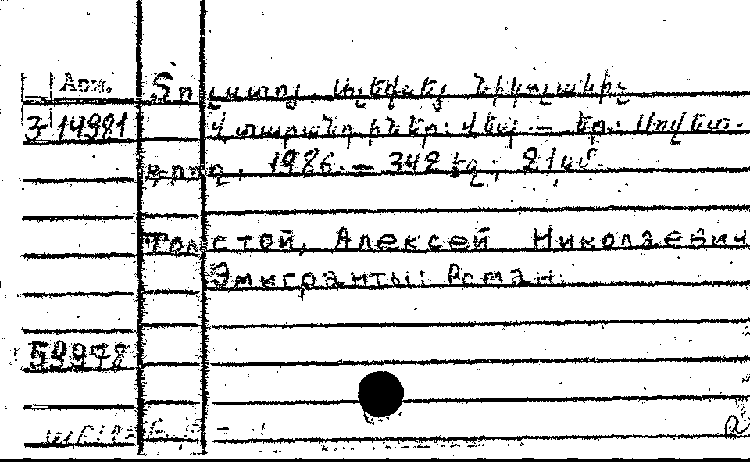 Арм.
Տոլստոյ, Ալեքսեյ Նիկոլաևիչ
3 14981
Վտարանդիներ: Վեպ — Եր.: Սովետ.
գրող, 1986. — 342 էջ; 21 սմ.
Толстой, Алексей Николаевич
Эмигранты: Роман.
59978